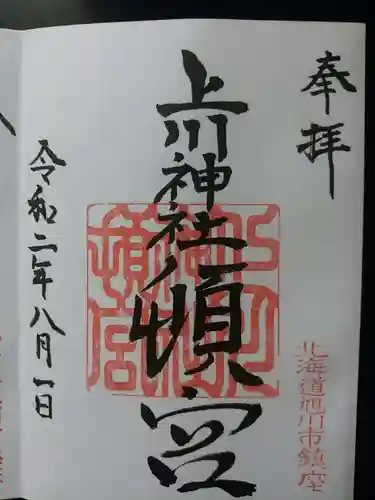 奉拝
上川神社頓宮
令和二年八月一日
北海道旭川市鎮座